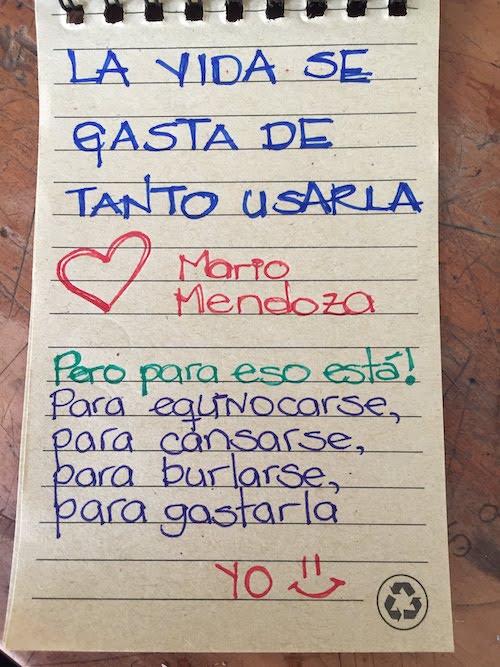 LA VIDA SE
GASTA DE
TANTO USARLA
Mario
Mendoza
Pero para eso está!
Para equivocarse,
para cansarse,
para burlarse,
para gastarla
YO